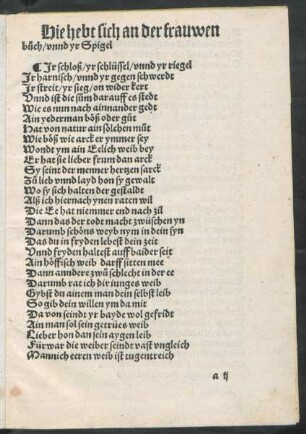 Hie hebt sich an der frauwen
bůch/vnnd yr Spigel
¶ Jr schloß/yr schlüssel/vnnd yr riegel
Jr harnisch/vnnd yr gegen schwerdt
Jr streit/yr sieg/on wider kert
Vnnd ist die sům darauff es stedt
Wie es nun nach ainnander gedt
Ain yederman böß oder gůt
Hat von natur ain sölchen můt
Wie böß wie arck er ymmer sey
Wondt ym ain Eelich weib bey
Er hat sie lieber frum dan arck
Sy seint der menner hertzen sarck
Zů lieb vnnd layd hon sy gewalt
Wo sy sich halten der gestaldt
Alß ich hiernach ynen raten wil
Die Ee hat niemmer end nach zil
Dann das der todt macht zwüschen yn
Darumb schöns weyb nym in dein syn
Das du in fryden lebest dein zeit
Vnnd fryden haltest auff baider seit
Ain höffisch weib darff sitten met
Dann anndere zwů schlecht in der ee
Darumb rat ich dir iunges weib
Gybst du ainem man dein selbst leib
So gib dein willen ym da mit
Da von seindt yr bayde wol gefridt
Ain man sol sein getrües weib
Lieber hon dan sein aygen leib
Fürwar die weiber seindt vast vngleich
Mannich eeren weib ist tugentreich
a ij